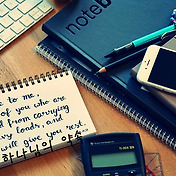 noteb
to me,
of you who are
d from carrying
vy loads, and
will give you rest.
하나님의 약속